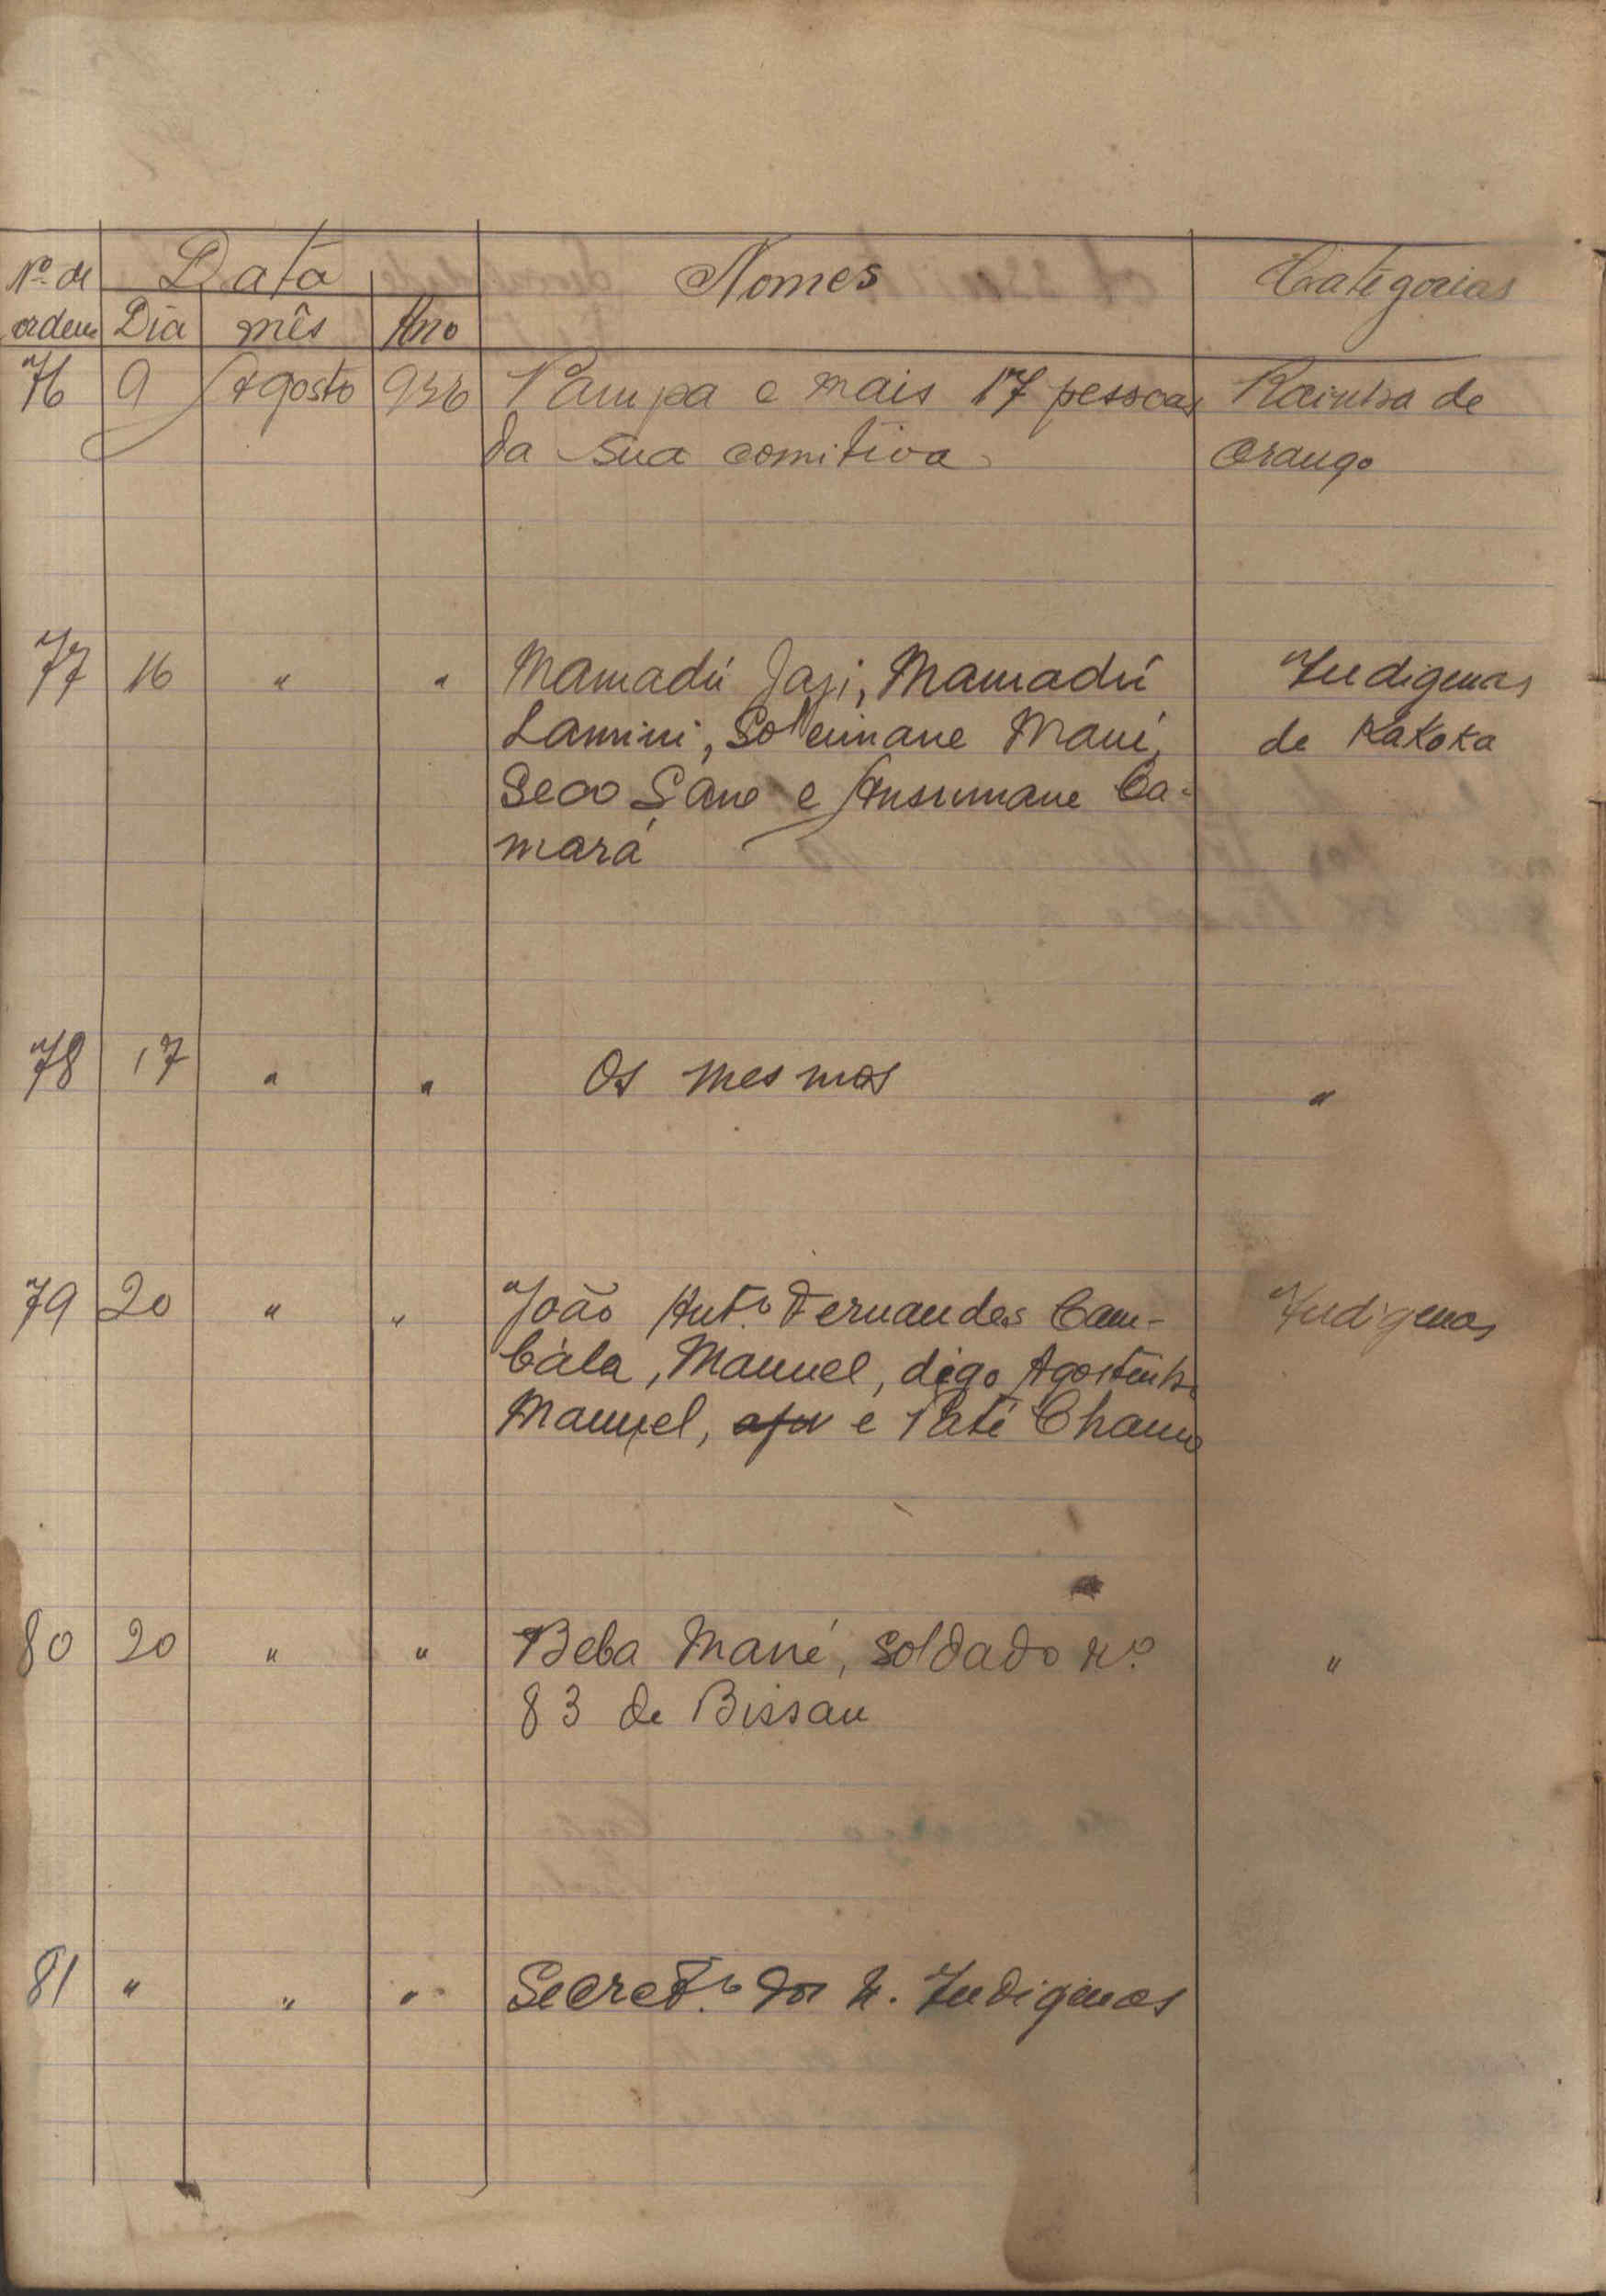 Nº de Data Nomes Categorias
ordem Dia mês Ano
76 9 Agosto 936 Pampa e mais 17 pessoas Rainha de
da sua comitiva Orango
77 16 " " Mamadú Jasi, Mamadú Indigenas
Lamini, Soleimane Mané, de Kakoka
Seco Sano e Ansumane Ca-
mará
78 17 " " Os mesmos "
79 20 " " João Antº Fernandes Cam- Indigenas
bála, Manuel, digo Agostinho
Manuel, e Paté Chamo
80 20 " " Beba Mané, soldado nº "
83 de Bissau
81 " " " Secretº dos N. Indigenas